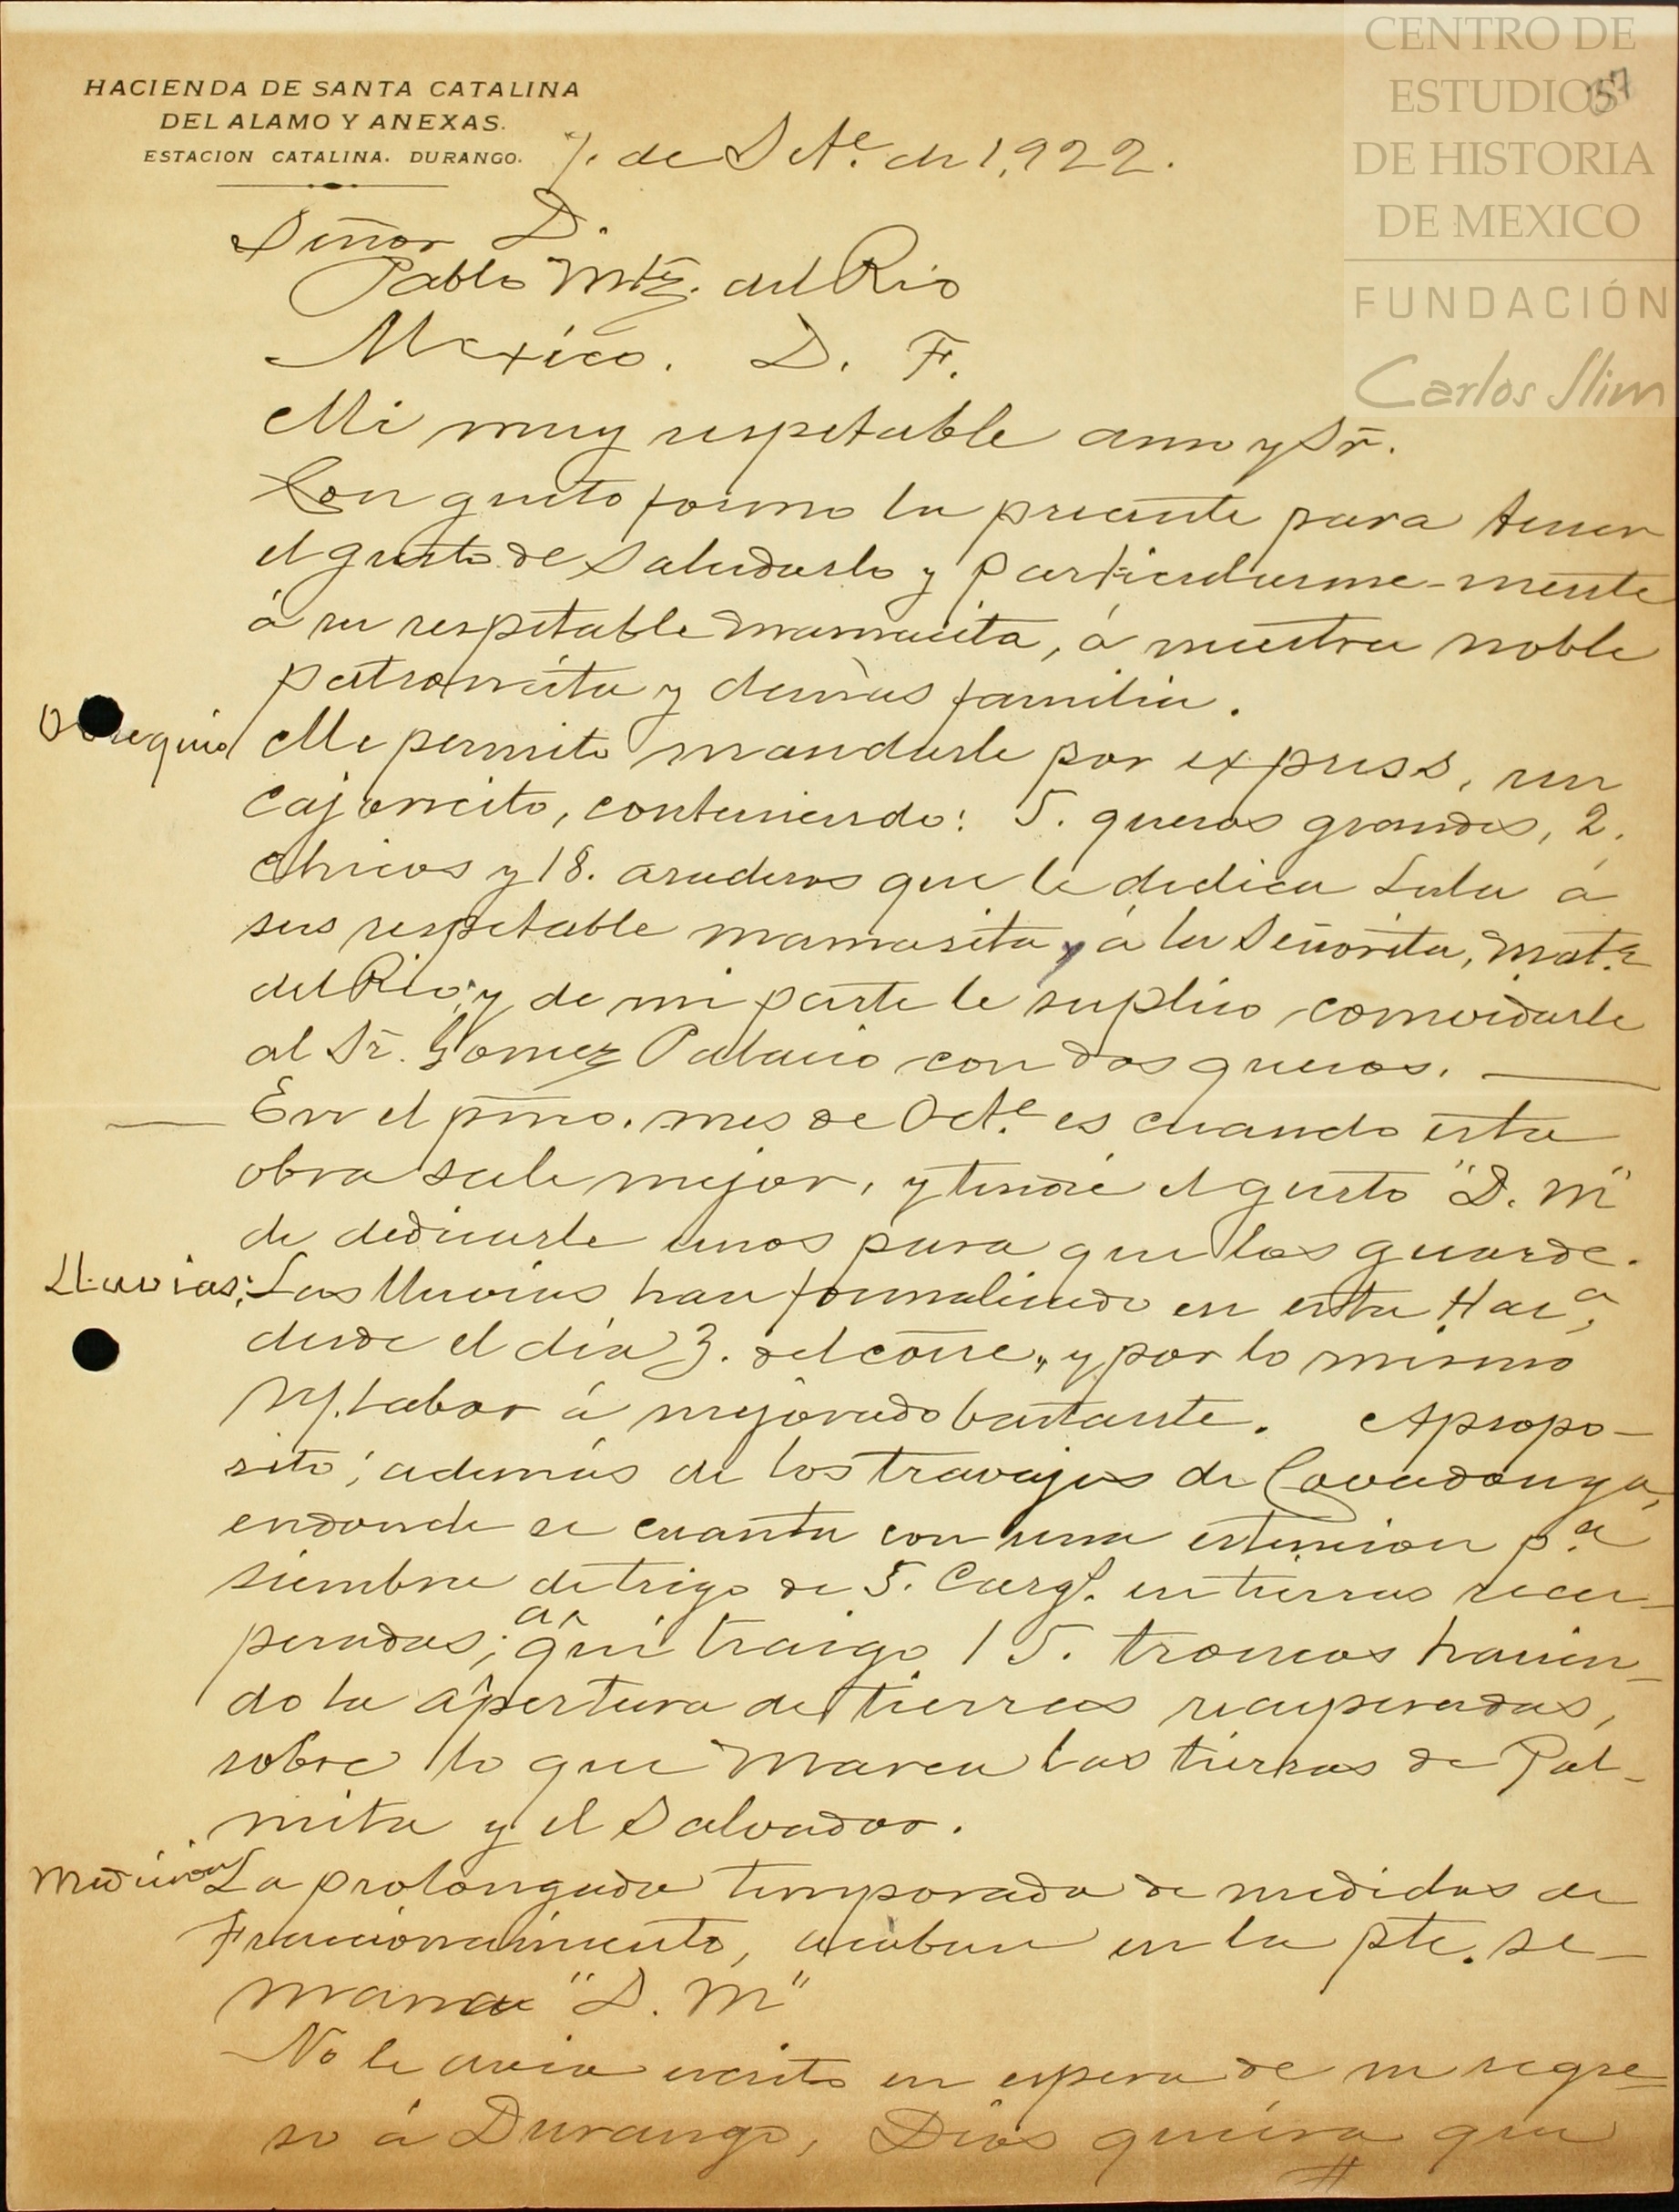 CENTRO DE
ESTUDIOS
DE HISTORIA
DE MEXICO
FUNDACIÓN
Carlos Slim
37
HACIENDA DE SANTA CATALINA
DEL ALAMO Y ANEXAS.
ESTACION CATALINA. DURANGO.
7. de Sete. de 1,922.
Señor D.
Pablo Mtz. del Rio
Mexico. D. F.
Mi muy respetable amo y Sr.
Con gusto formo la presente para tener
el gusto de saludarlo y particularme-mente
á su respetable mamacita, á nuestra noble
patroncita y demás familia.
Obsequio Me permito mandarle por express, un
cajoncito, conteniendo: 5. quesos grandes, 2,
chicos y 18. asaderos que le dedica Lala á
sus respetable mamasita y á la Señorita, Mata.
del Rio; y de mi parte le suplico comvidarle
al Sr. Gomez Palacio con dos quesos.
En el pmo. mes de Octe. es cuando esta
obra sale mejor, y tendré el gusto "D. M"
de dedicarle unos para que los guarde.
Lluvias; Las lluvias han formalizado en esta Haca,
desde el día 3. del corre., y por lo mismo
labor á mejorado bastante. Apropo-
sito; además de los travajos de Covadonga,
endonde se cuanta con una estencion pa.
siembra de trigo de 5. Carg. en tierras recu-
peradas; aquí traigo 15. troncos hacien-
do la apertura de tierras recuperadas,
sobre lo que marca las tierras de Pal-
mita y el Salvador.
Medicion La prolongada temporada de medidas de
Fraccionamiento, acaban en la pte. se-
mana "D. M"
No le avia escrito en espera de su regre=
so á Durango, Dios quiera que